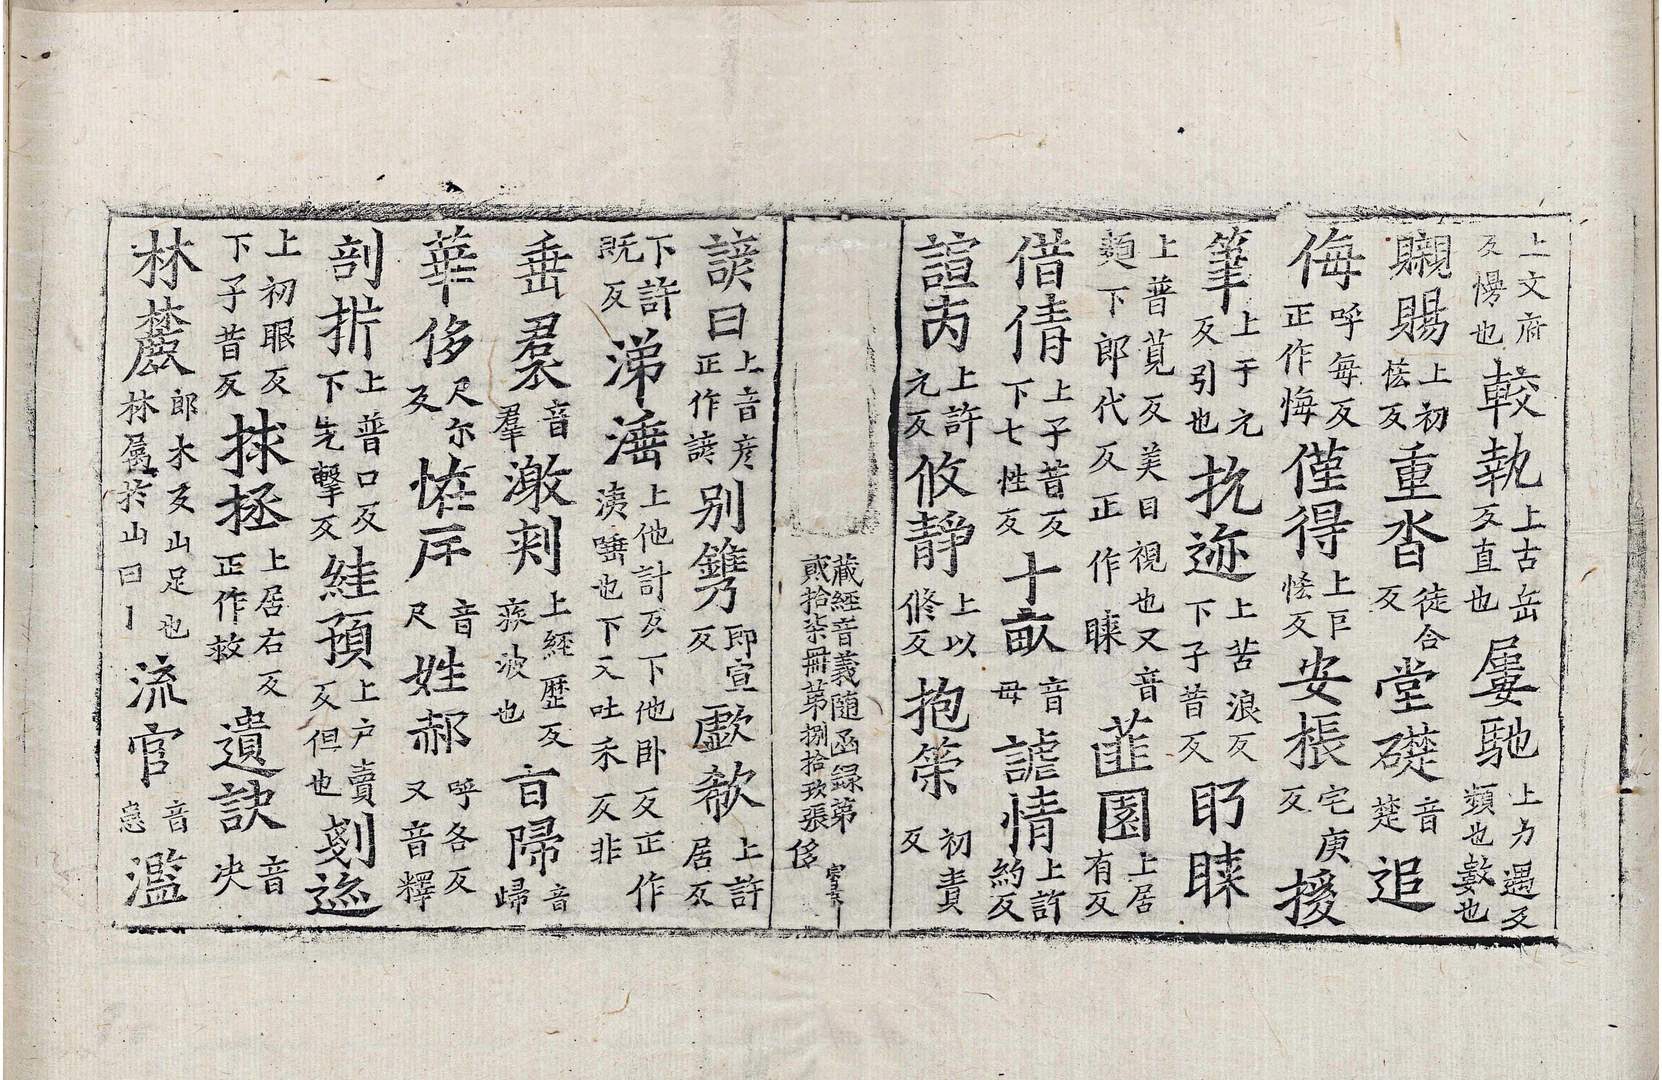 上文府反慢也較執上古岳反直也屢馳上力遇反頻也數也
䞋賜上初恡反重沓徒合反堂礎音楚追
侮呼每反正作悔僅得上巨恡反安棖宅庚反援
筆上于元反引也抗迹上苦浪反下子昔反眄睞
上普莧反美目視也又音麺下郎代反正作睞葅園上居有反
借倩上子昔反下七性反十畝音母謔情上許約反
諠芮上許元反攸靜上以修反抱策初責反
藏經音義隨函録第貳拾柒冊第捌拾玖張侈
諺曰上音彦正作諺别鐫即宣反歔欷上許居反
下許既反涕涶上他計反下他卧反正作洟唾也下又吐禾反非
垂裠音羣激刺上經歷反疾波也盲歸音歸
華侈尺尔反恠斥音尺姓郝呼各反又音釋
剖析上普口反下先擊反絓預上户賣反反但也剗迹
上初眼反下子昔反捄拯上居右反正作救遺訣音决
林麓郎木反山足也林屬於山曰丨流宦音患濫